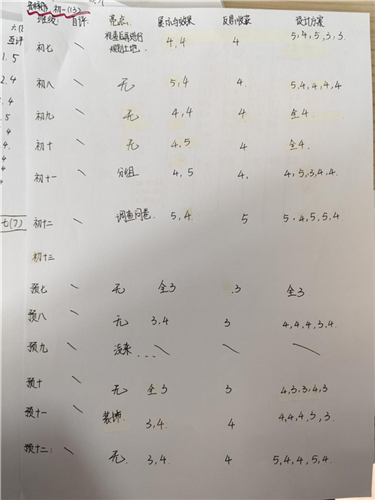 初一(13)
班级 自评 亮点 展示与效果 反思收获 设计方案
初七 4,4 4 5,4,5,3,3.
初八 无 5,4 4. 5,4,4,4,4
初九 无 4,4 4 全4
初十 无 4,5 4. 全4.
初十一 分组. 4,5 4. 4,5,3,4,4.
初十二 调查问卷. 5,4 5 5.4,5,5.4
初十三
预七 无 全3 .3 全3
预八 无 3,4 3 4,4,4,3,4.
预九 没来...
预十 无 全3 3 4,3,3,4,3
预十一 装饰. 3,4. 4 4,4,4,3,3.
预十二: 无. 3,4. 4 5,4,4,5,4.
六(
互评
.5
2.4
.4
七(7)